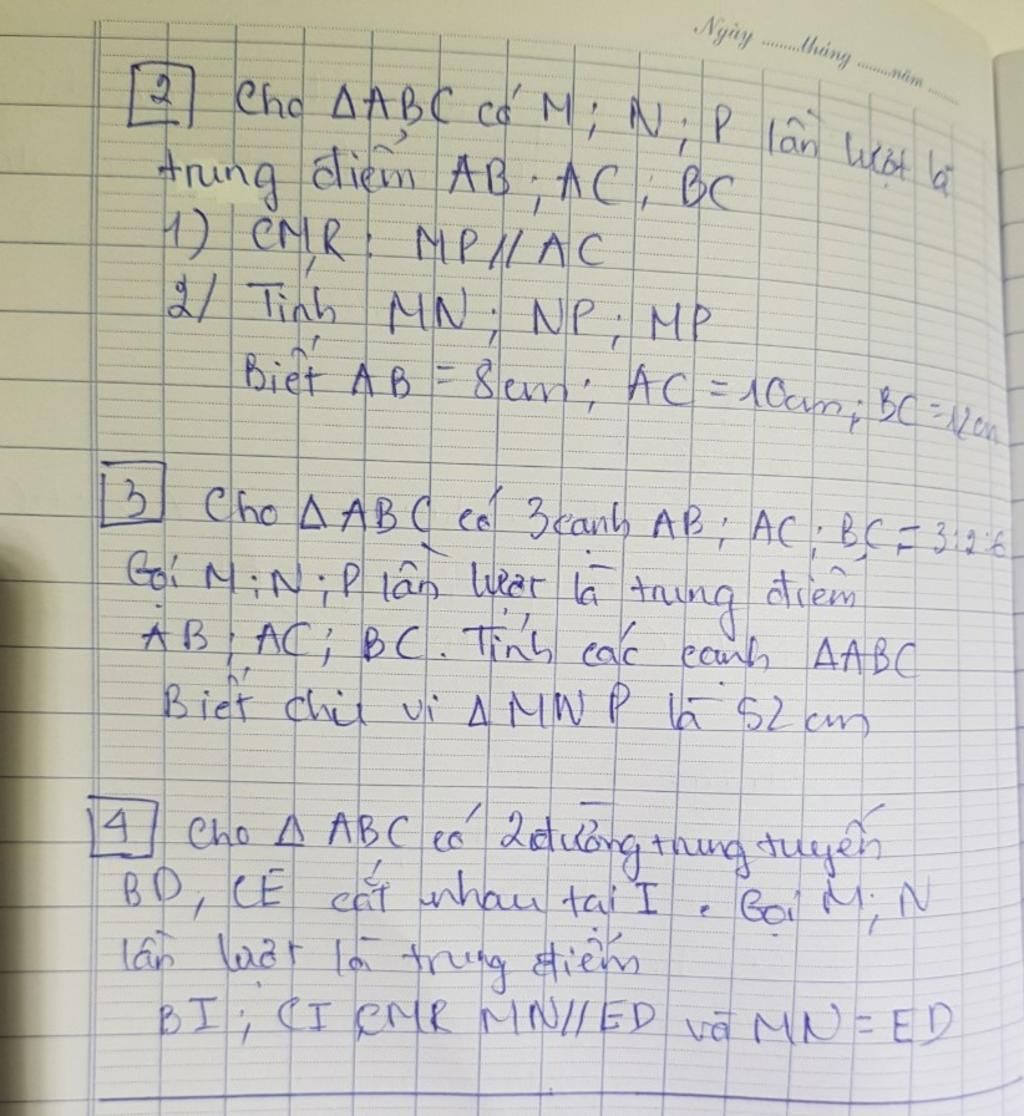 Ngày ........tháng ........năm ........
2 Cho ΔABC có M; N; P lần lượt là
trung điểm AB; AC; BC
1) CMR: MP//AC
2/ Tính MN; NP; MP
Biết AB = 8cm; AC = 10cm; BC = 12cm
3 Cho ΔABC có 3 cạnh AB; AC; BC = 3:2:
Gọi M; N; P lần lượt là trung điểm
AB; AC; BC. Tính các cạnh ΔABC
Biết chu vi ΔMNP là 52 cm
4 Cho Δ ABC có 2 đường trung tuyến
BD, CE cắt nhau tại I. Gọi M; N
lần lượt là trung điểm
BI; CI CMR MN//ED và MN = ED